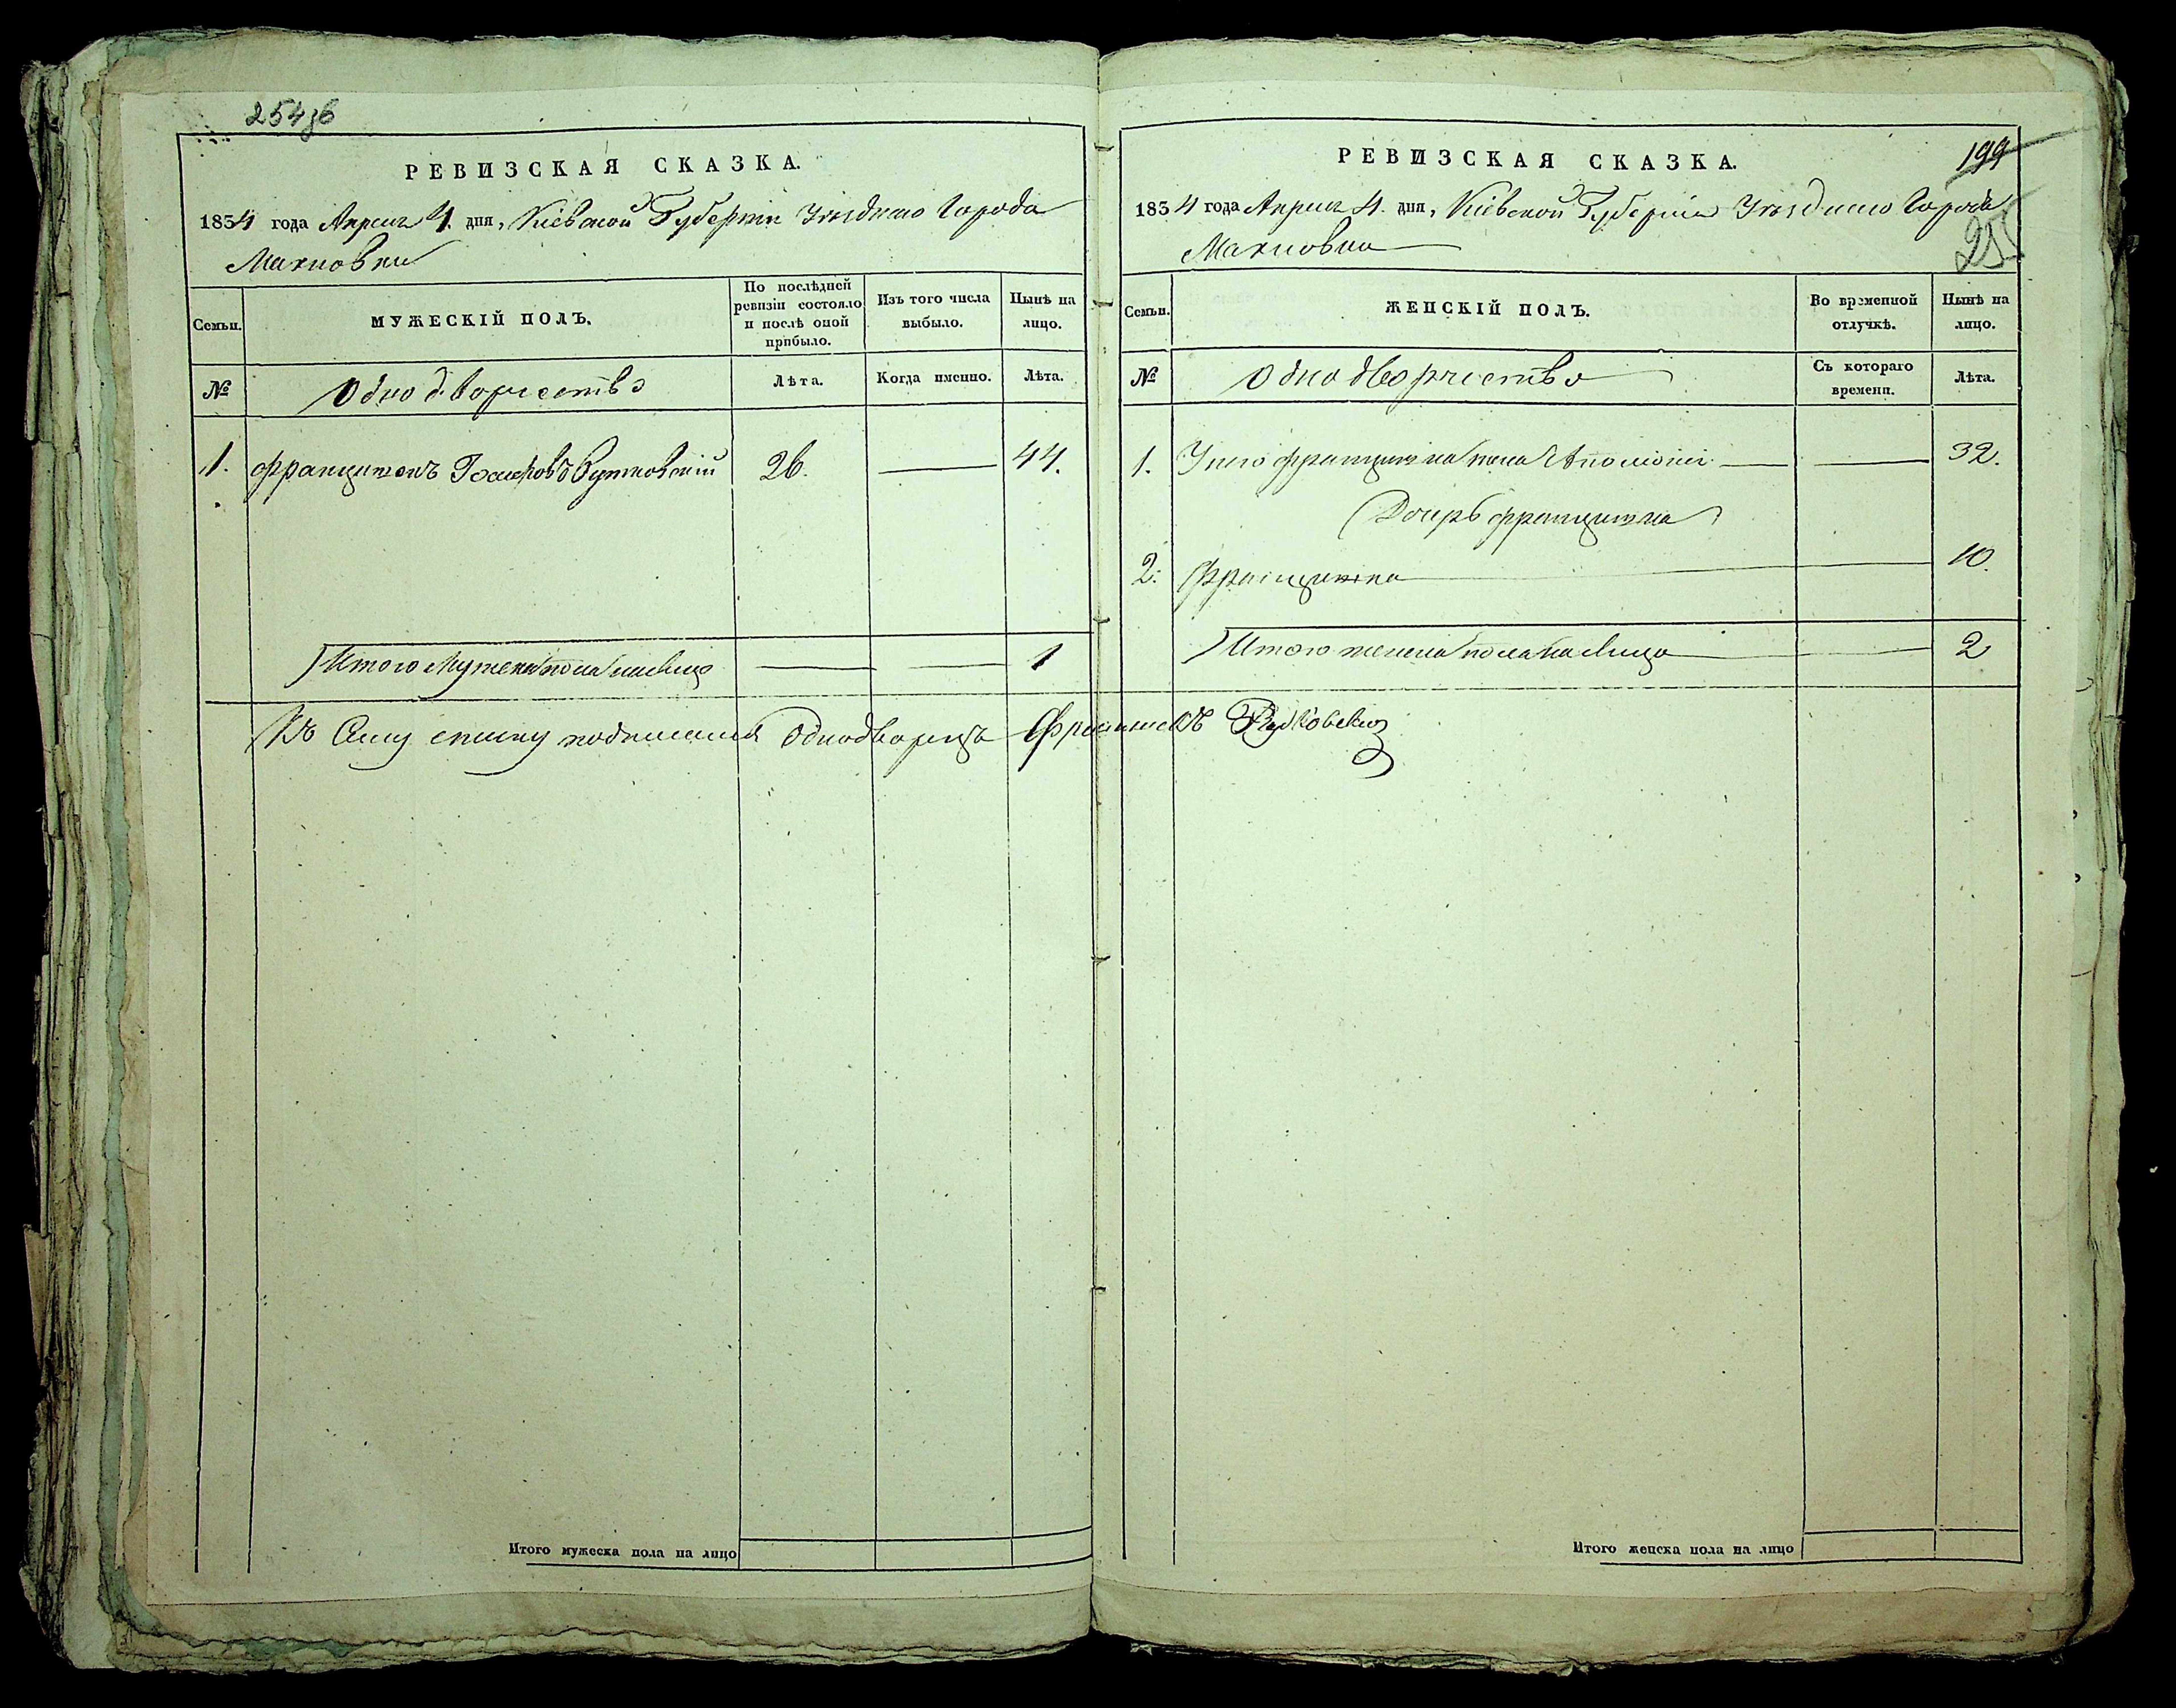 254об
РЕВИЗСКАЯ СКАЗКА.
1834 года Апреля 4. дня, Кіевской Губерніи Уезднаго Города
Махновки
Семьи.
МУЖЕСКІЙ ПОЛЪ.
По послѣдней ревизіи состояло и послѣ оной прибыло.
Изъ того числа выбыло.
Нынѣ на лицо.
№
Однодворчество
Лѣта.
Когда именно.
Лѣта.
1. Францишекъ 26. 44.
Итого Мужеска пола налицо 1
Къ Сему списку подписался Однодворецъ Францишекъ
Итого мужеска пола на лицо
РЕВИЗСКАЯ СКАЗКА.
199
1834 года Апреля 4. дня, Кіевской Губерніи Уезднаго Города
255
Махновки
Семьи.
ЖЕНСКІЙ ПОЛЪ.
Во временной отлучкѣ.
Нынѣ на лицо.
№
Однодворчество
Съ котораго времени.
Лѣта.
1. Унего Францишка жена Аполонія 32.
Дочерь Францишка
2. Францишка 10.
Итого женска пола на Лицо 2
Итого женска пола на лицо